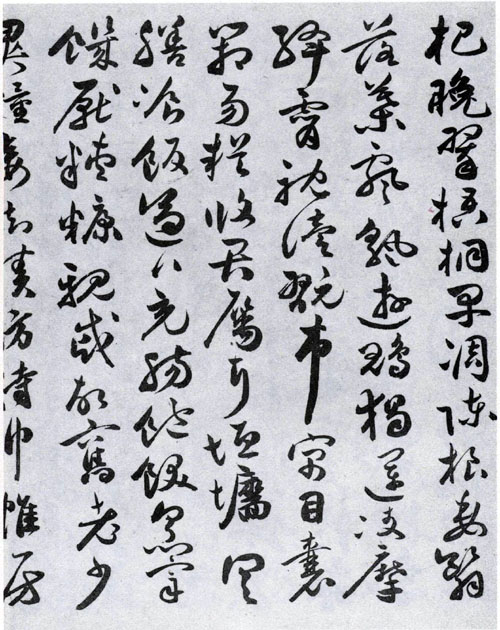 杷晚翠梧桐早凋陳根委翳
落葉飄颻遊鵾獨運凌摩
絳霄耽讀翫市寓目囊
箱易輶攸畏屬耳垣墻具
膳飡飯適口充腸飽飫烹宰
饑厭糟糠親戚故舊老少
異糧妾御績紡侍巾帷房